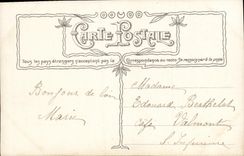 CARTE POSTALE
Tous les pays étrangers n'acceptent pas la Correspondance au recto. Se renseigner à la poste
Bonjour de loin
Marie
Madame
Edouard Berthelot
Valmont
S. Inférieure